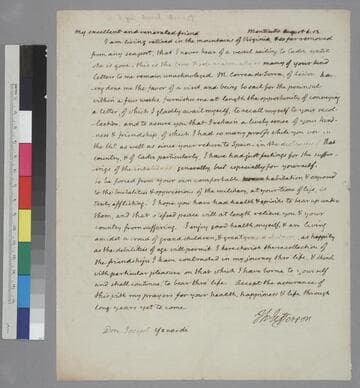 My excellent and venerated friend Monticello August 6. 13
I am living retired in the mountains of Virginia, & so far removed
from any seaport, that I never hear of a vessel sailing to Cadiz until
she is gone. this is the many of your kind
letters to me remain unacknoleged. M. Correa de Serra, of having ha-
ving done me the favor of a visit and being to sail for the peninsul
within a few weeks, furnishes me at length the opportunity of conveying
a letter of which I gladly avail myself, to recall myself to your recol-
lection, and to assure you that I retain a lively sense of your kind-
ness & friendship of which I had so many proofs while you were in
the US. as well as since your return to Spain. in the That
country, & of Cadiz particularly, I have had just feelings for the suffer-
ings of the generally but especially for yourself.
to be forced from your own comfortable habitation & exposed
to the brutalities & oppressions of the military, at your time of life, is
truly afflicting. I hope you have had health & spirits to bear up under
them, and that a speedy peace will at length relieve you & your
country from suffering. I enjoy good health myself, & am living
amidst a crowd of grand children, & as happily
as the debilities of age will permit. I here cherish the recollection of
the friendships I have contracted in my journey thro' life, & think
with particular pleasure on that which I have borne to yourself
and shall continue to bear thro' life. Accept the assurance of
this with my prayers for your health, happiness & life through
long years yet to come.
Th Jefferson
Don Joseph Yznardi